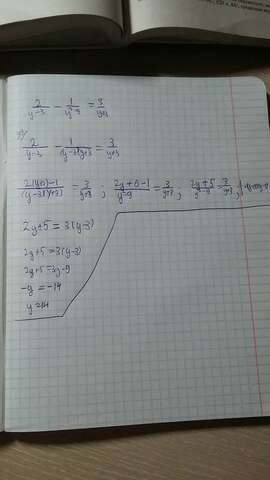 2/(y-3) - 1/(y²-9) = 3/(y+3)
2/(y-3) - 1/((y-3)(y+3)) = 3/(y+3)
(2(y+3)-1)/((y-3)(y+3)) = 3/(y+3) ; (2y+6-1)/(y²-9) = 3/(y+3) ; (2y+5)/(y²-9) = 3/(y+3) ;
2y+5 = 3(y-3)
2y+5 = 3(y-3)
2y+5 = 3y-9
-y = -14
y = 14